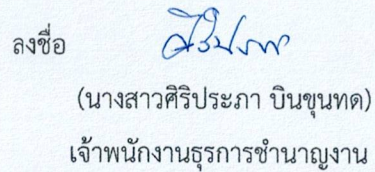 ลงชื่อ ศิริประภา
(นางสาวศิริประภา บินขุนทด)
เจ้าพนักงานธุรการชำนาญงาน